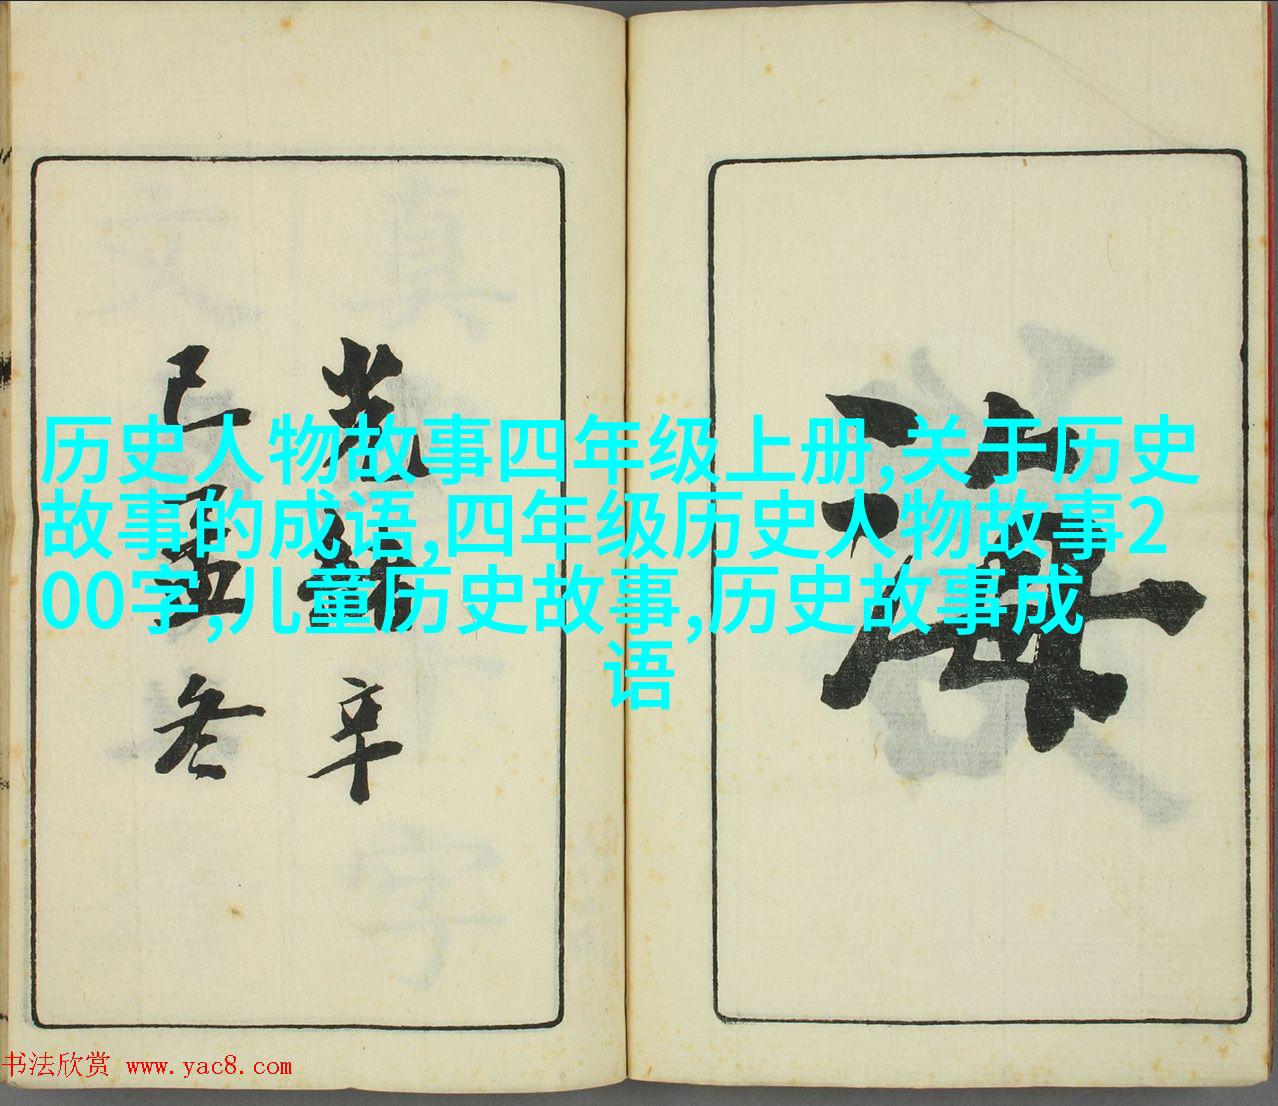 海
光緒辛
已孟冬
历史人物故事四年级上册,关于历史
故事的成语,四年级历史人物故事2
00字,儿童历史故事,历史故事成
语
书法欣赏 www.yac8.com